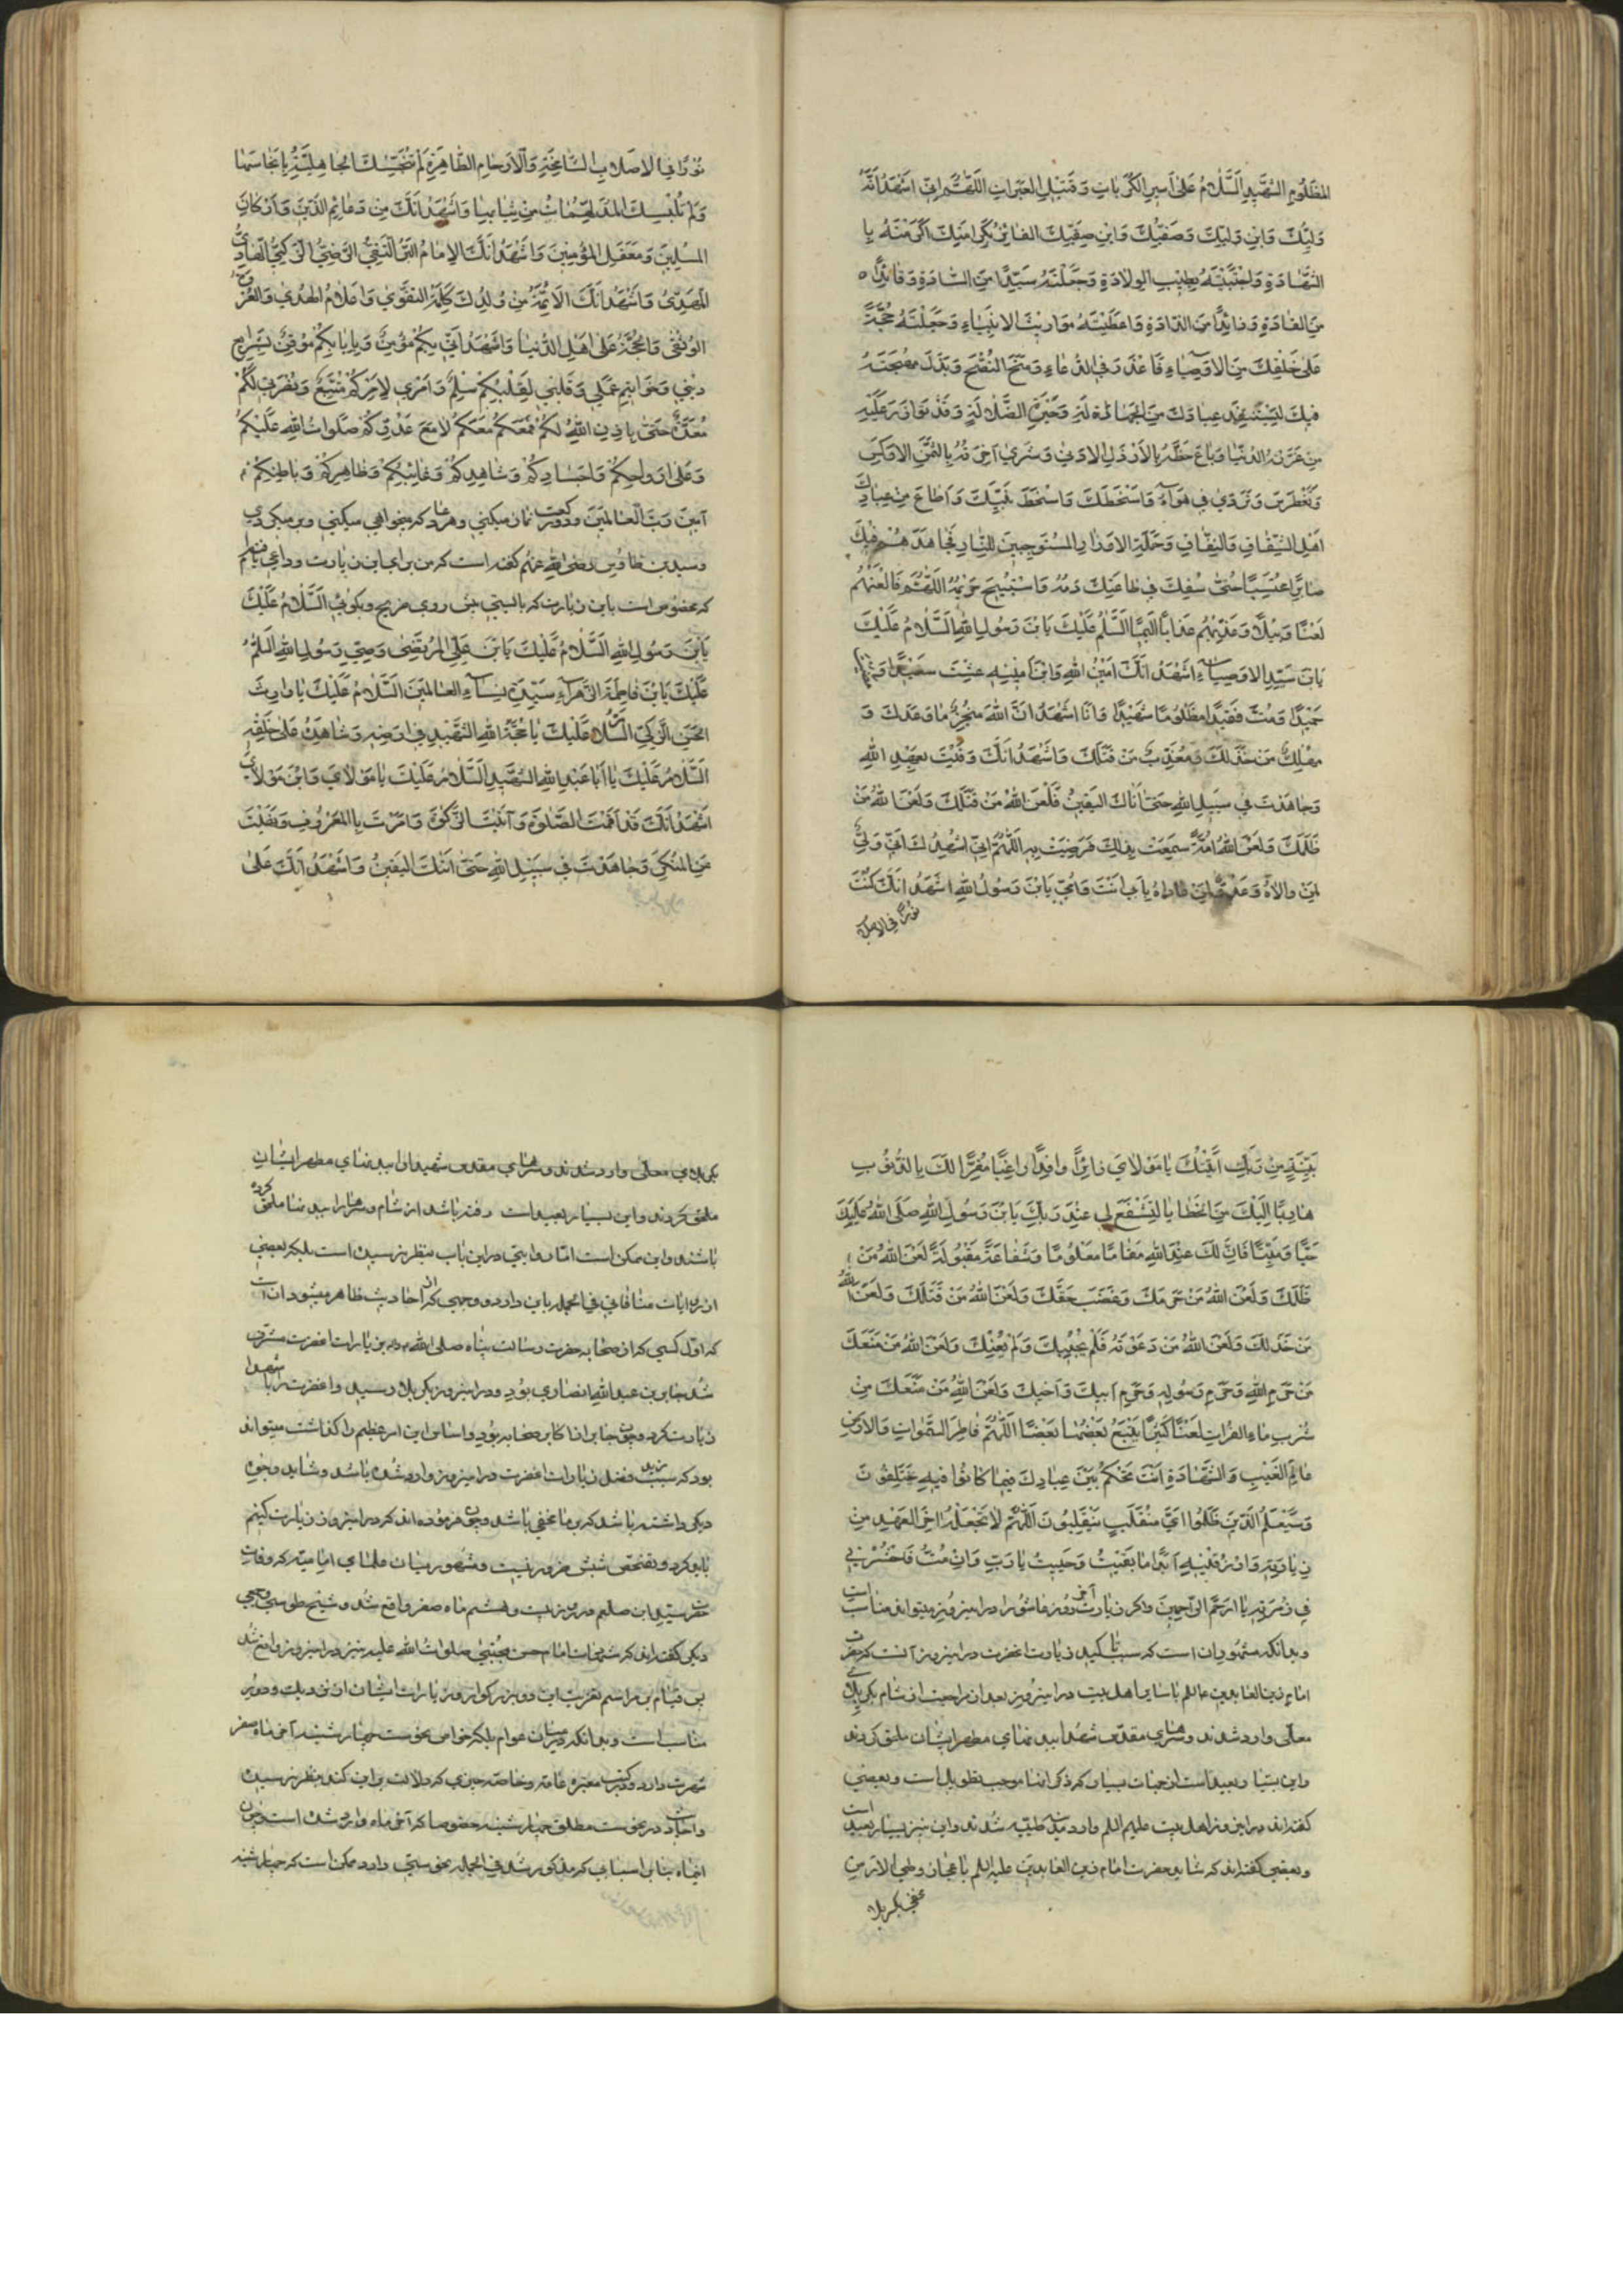 المظلوم الشهيد السلام على اسير الكربات و قتيل العبرات اللهم اني اشهد انه
وليك وابن وليك و صفيك وابن صفيك الفائز بكرامتك اكرمته با
الشهادة واجتبيته بطيب الولادة وجعلته سيدا من السادة وقائدا
من القادة وذائدا من الذادة واعطيته مواريث الانبياء وجعلته حجة
على خلقك من الاوصياء فاعذر في الدعاء ومنح النصح وبذل مهجته
فيك ليستنقذ عبادك من الجهالة وحيرة الضلالة وقد توازر عليه
من غرته الدنيا وباع حظه بالارذل الادنى وشرى اخرته بالثمن الاوكس
وتغطرس وتردى في هواه واسخطك واسخط نبيك واطاع من عبادك
اهل الشقاق والنفاق وحملة الاوزار المستوجبين للنار فجاهدهم فيك
صابرا محتسبا حتى سفك في طاعتك دمه واستبيح حريمه اللهم فالعنهم
لعنا وبيلا وعذبهم عذابا اليما السلم عليك يابن رسول الله السلام عليك
يابن سيد الاوصياء اشهد انك امين الله وابن امينه عشت سعيدا و
حميدا ومت فقيدا مظلوما شهيدا وانا اشهد ان الله منجز ما وعدك و
مهلك من خذلك ومعذب من قتلك واشهد انك وفيت بعهد الله
وجاهدت في سبيل الله حتى اتاك اليقين فلعن الله من قتلك ولعن الله من
ظلمك ولعن الله امة سمعت بذلك فرضيت به اللهم اني اشهدك اني ولي
لمن والاه وعدو لمن عاداه بابي انت وامي يابن رسول الله اشهد انك كنت
نورا في الاصلاب
نورا في الاصلاب الشامخة والارحام الطاهرة لم تنجسك الجاهلية بانجاسها
ولم تلبسك المدلهمات من ثيابها واشهد انك من دعائم الدين واركان
المسلمين ومعقل المؤمنين واشهد انك الامام البر التقي الرضي الزكي الهادي
المهدي واشهد ان الائمة من ولدك كلمة التقوى واعلام الهدى والعروة
الوثقى والحجة على اهل الدنيا واشهد اني بكم مؤمن وبايابكم موقن بشرايع
ديني وخواتيم عملي وقلبي لقلبكم سلم وامري لامركم متبع ونصرتي لكم
معدة حتى ياذن الله لكم فمعكم معكم لا مع عدوكم صلوات الله عليكم
وعلى ارواحكم واجسادكم وشاهدكم وغايبكم وظاهركم وباطنكم
آمين رب العالمين و دو ركعت نماز ميكني و دعا كه ميخواهي ميكني وبر ميكردي
وسيد بن طاوس رضي الله عنهم كفته است كه من براي اين زيارت وداعي يافتم
كه مخصوص است باين زيارت كه بايستي پيش روي ضريح وبكوئي السلام عليك
يابن رسول الله السلام عليك يابن علي المرتضى وصي رسول الله السلم
عليك يابن فاطمة الزهراء سيدة نساء العالمين السلام عليك يا وارث
الحسن الزكي السلام عليك يا حجة الله الشهيد في ارضه وشاهده على خلقه
السلام عليك يا ابا عبد الله الشهيد السلام عليك يا مولاي وابن مولاي
اشهد انك قد اقمت الصلوة وآتيت الزكوة وامرت بالمعروف ونهيت
عن المنكر وجاهدت في سبيل الله حتى اتاك اليقين واشهد انك على
بينة من ربك اتيتك يا مولاي زائرا وافدا راغبا مقرا لك بالذنوب
هاربا اليك من الخطايا لتشفع لي عند ربك يابن رسول الله صلى الله عليك
حيا وميتا فان لك عند الله مقاما معلوما وشفاعة مقبولة لعن الله من
ظلمك ولعن الله من حرمك وغصب حقك ولعن الله من قتلك ولعن الله
من خذلك ولعن الله من دعوته فلم يجبك ولم يعنك ولعن الله من منعك
من حرم الله وحرم رسوله وحرم ابيك واخيك ولعن الله من منعك من
شرب ماء الفرات لعنا كثيرا يتبع بعضها بعضا اللهم فاطر السموات والارض
عالم الغيب والشهادة انت تحكم بين عبادك فيما كانوا فيه يختلفون
وسيعلم الذين ظلموا اي منقلب ينقلبون اللهم لا تجعله اخر العهد من
زيارته وارزقنيه ابدا ما بقيت وحييت يا رب وان مت فاحشرني
في زمرته يا ارحم الراحمين واكر زيارت آخر روز عاشورا در اين روز بخوانند مناسب است
وبدانكه مشهور ان است كه سبب تاكيد زيارت انحضرت در اين روز آنست كه حضرت
امام زين العابدين عليه السلم با ساير اهل بيت در اين روز بعد از مراجعت از شام بكربلاي
معلى وارد شدند و سرهاي مقدس شهدا ببدنهاي مطهر ايشان ملحق كردند
واين بسيار بعيد است از جهات بسيار كه ذكر انها موجب تطويل است و بعضي
كفته اند در اين روز اهل بيت عليهم السلم وارد مدينه طيبه شدند واين نيز بسيار بعيد است
وبعضي كفته اند كه شايد حضرت امام زين العابدين عليه السلم باعجاز و طي الارض
مخفي بكربلا
بكربلاي معلى وارد شدند و سرهاي مقدس شهيدان را ببدنهاي مطهر ايشان
ملحق كردند واين بسيار بعيد است رفته باشد از شام وسرها را ببدنها ملحق كرده
باشند واين ممكن است اما روايتي در اين باب بنظر نرسيده است بلكه بعضي
از روايات منافاتي في الجمله باين دارد و وجهي كه از احاديث ظاهر ميشود ان است
كه اول كسي كه از صحابه حضرت رسالت پناه صلى الله عليه و آله بزيارت انحضرت مشرف
شد جابر بن عبد الله انصاري بود و در اين روز بكربلا رسيد وانحضرت را با شهدا
زيارت كرد وچون جابر از اكابر صحابه بود واساس اين امر عظيم را كذاشت ميتواند
بود كه سبب مزيد فضل زيارت انحضرت در اين روز وارد شده باشد و شايد وجوه
ديكر داشته باشد كه بر ما مخفي باشد وچون فرموده اند كه در اين روز زيارت كنيم
بايد كرد و تفحص سببش ضرور نيست ومشهور ميان علماي اماميه كه وفات
حضرت سيد انبيا صلعم در روز بيست وهشتم ماه صفر واقع شد و شيخ طوسي و جمعي
ديكر كفته اند كه شهادت امام حسن مجتبى صلوات الله عليه نيز در اين روز واقع شد
پس قيام بمراسم تعزيت اين دو بزركوار و زيارت ايشان از نزديك ودور
مناسب است وبدانكه در ميان عوام بلكه خواص نحوست چهارشنبه آخر ماه صفر
شهرت دارد ودر كتب معتبره عامه وخاصه چيزي كه دلالت براين كند بنظر نرسيده
واحاديث در نحوست مطلق چهارشنبه خصوصا كه آخر ماه وارد شده است وچون
اين ماه بنابر اسبابي كه مذكور شد في الجمله نحوستي دارد ممكن است كه چهارشنبه